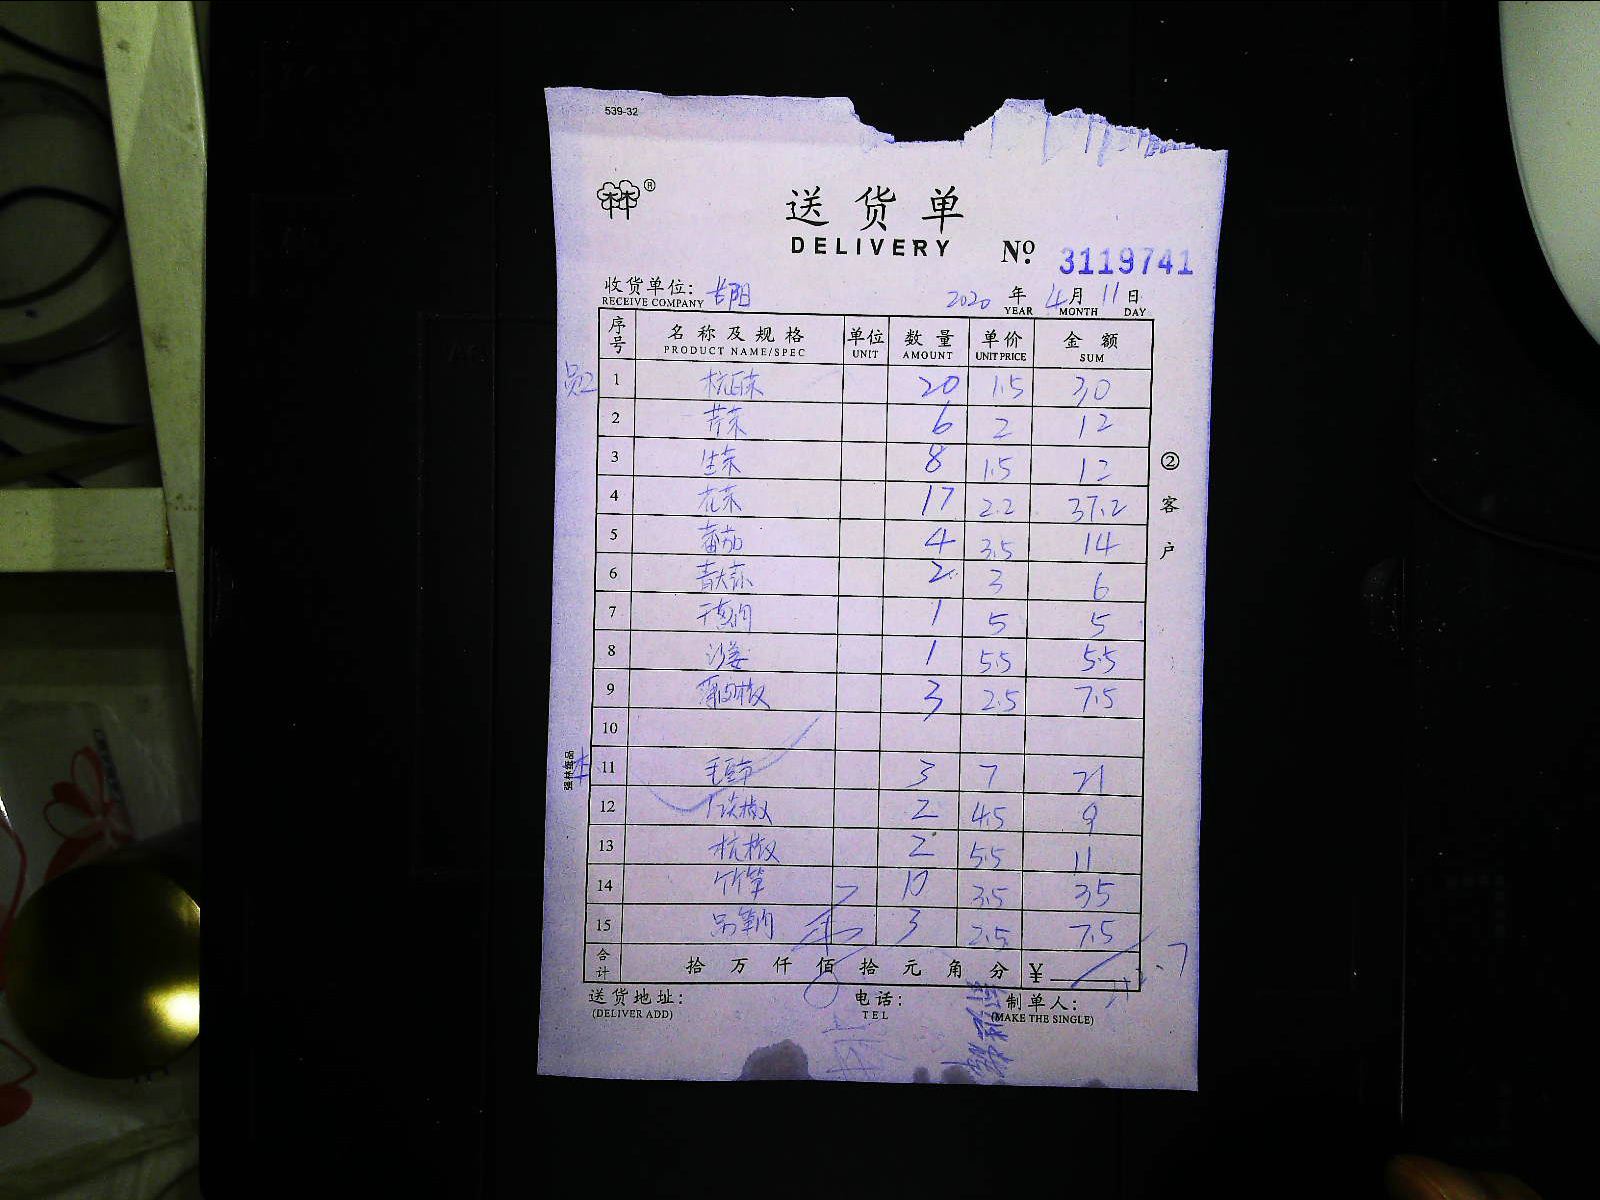 539-32
林®
送货单
DELIVERY
No 3119741
收货单位: 长阳 2020 年 4 月 11 日
RECEIVE COMPANY YEAR MONTH DAY
序号 名称及规格 单位 数量 单价 金额
PRODUCT NAME/SPEC UNIT AMOUNT UNIT PRICE SUM
员工 1 杭白菜 20 1.5 30
2 芹菜 6 2 12
3 生菜 8 1.5 12
4 花菜 17 2.2 37.2
5 番茄 4 3.5 14
6 青大蒜 2 3 6
7 1 5 5
8 沙姜 1 5.5 5.5
9 薄皮椒 3 2.5 7.5
10
11 毛豆节 3 7 21
12 2 4.5 9
13 杭椒 2 5.5 11
14 竹笋 10 3.5 35
15 3 2.5 7.5
合计 拾 万 仟 佰 拾 元 角 分 ¥
②客户
强林纸品
送货地址: 电话: 制单人:
(DELIVER ADD) TEL (MAKE THE SINGLE)